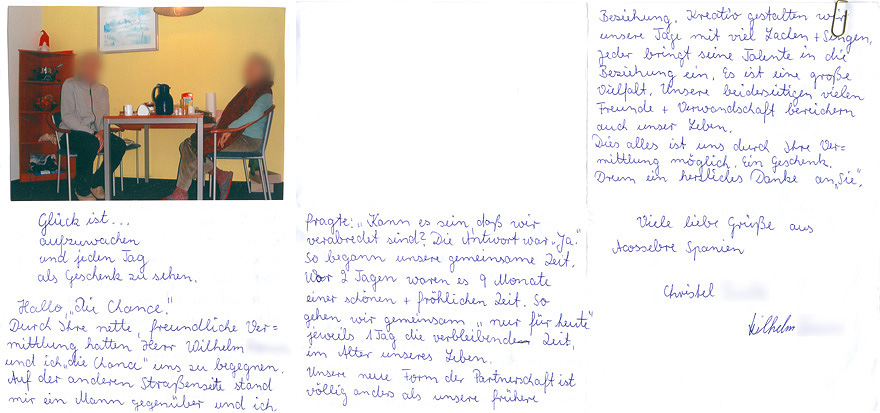 Glück ist...
aufzuwachen
und jeden Tag
als Geschenk zu sehen.
Hallo „die Chance“
Durch Ihre nette, freundliche Ver=
mittlung hatten Herr Wilhelm
und ich „die Chance“ uns zu begegnen.
Auf der anderen Straßenseite stand
mir ein Mann gegenüber und ich
fragte: „Kann es sein, daß wir
verabredet sind? Die Antwort war „Ja.“
So begann unsere gemeinsame Zeit.
Vor 2 Tagen waren es 9 Monate
einer schönen + fröhlichen Zeit. So
gehen wir gemeinsam „nur für heute“
jeweils 1 Tag die verbleibende Zeit,
im Alter unseres Leben.
Unsere neue Form der Partnerschaft ist
völlig anders als unsere frühere
Beziehung. Kreativ gestalten wir
unsere Tage mit viel Lachen + Singen,
jeder bringt seine Talente in die
Beziehung ein. Es ist eine große
Vielfalt. Unsere beiderseitigen vielen
Freunde + Verwandschaft bereichern
auch unser Leben.
Dies alles ist uns durch Ihre Ver=
mittlung möglich. Ein Geschenk.
Drum ein herzliches Danke an „Sie“,
Viele liebe Grüße aus
Acossebre Spanien
Christel
Wilhelm